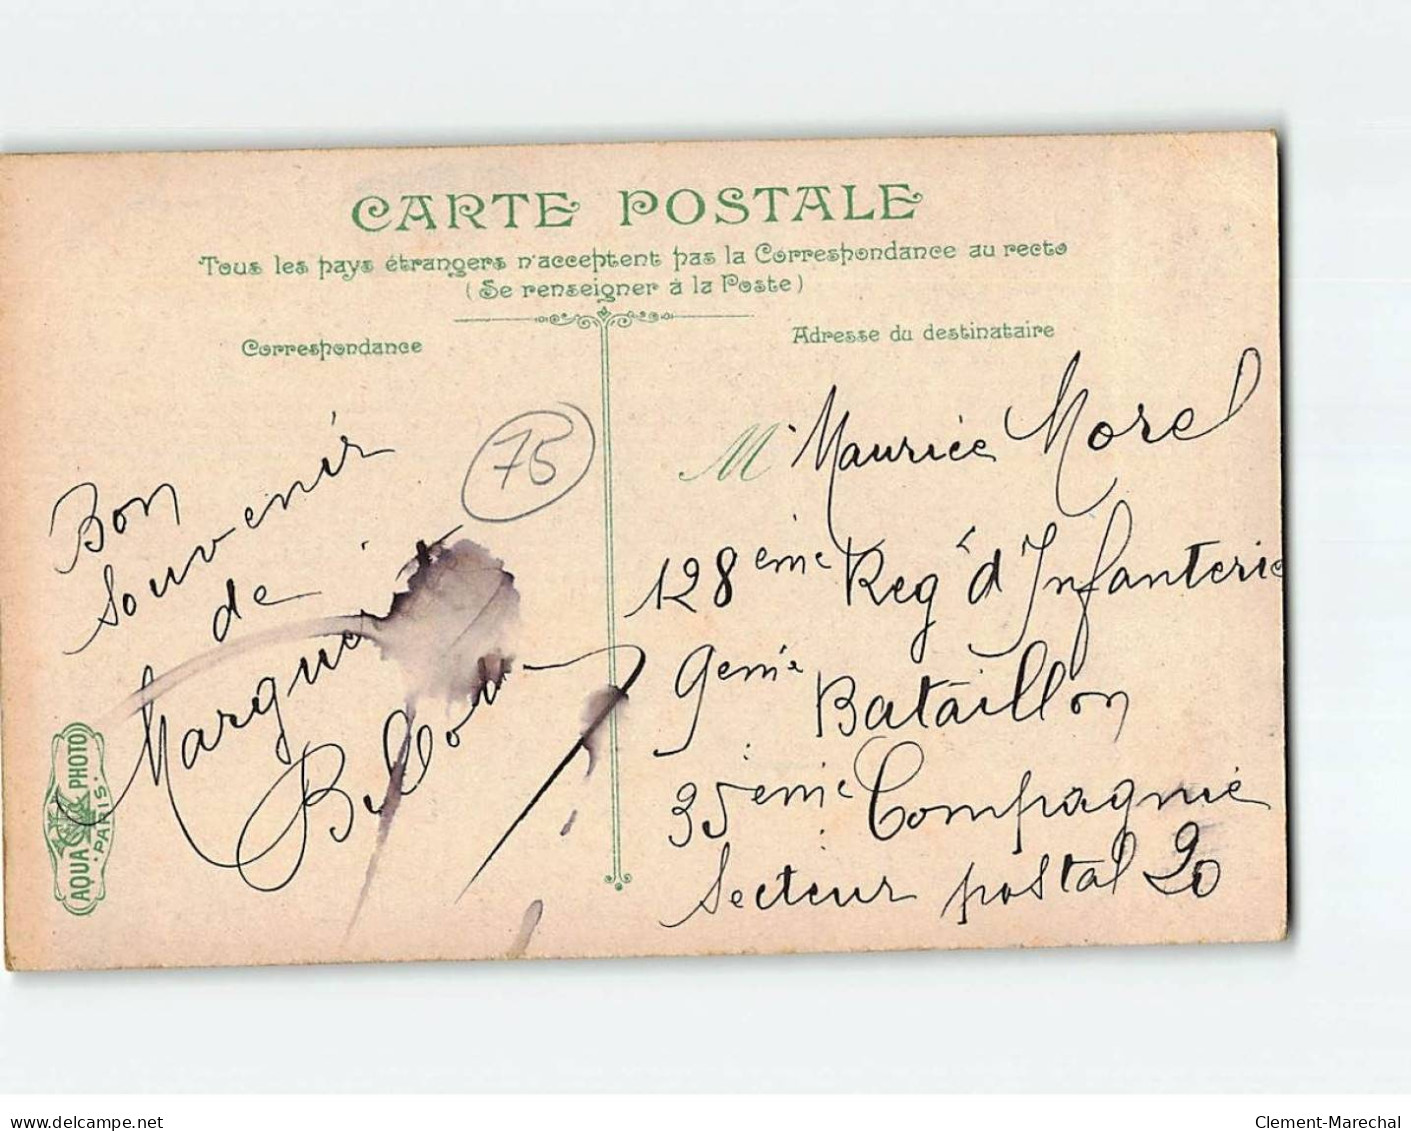 CARTE POSTALE
Tous les pays étrangers n'acceptent pas la Correspondance au recto
(Se renseigner à la Poste)
Correspondance
Adresse du destinataire
75
Bon
souvenir
de
AQUA PHOTO
PARIS
M Maurice Morel
128ème Reg d'Infanterie
9eme Bataillon
35ème Compagnie
Secteur postal 20
www.delcampe.net
Clement-Marechal